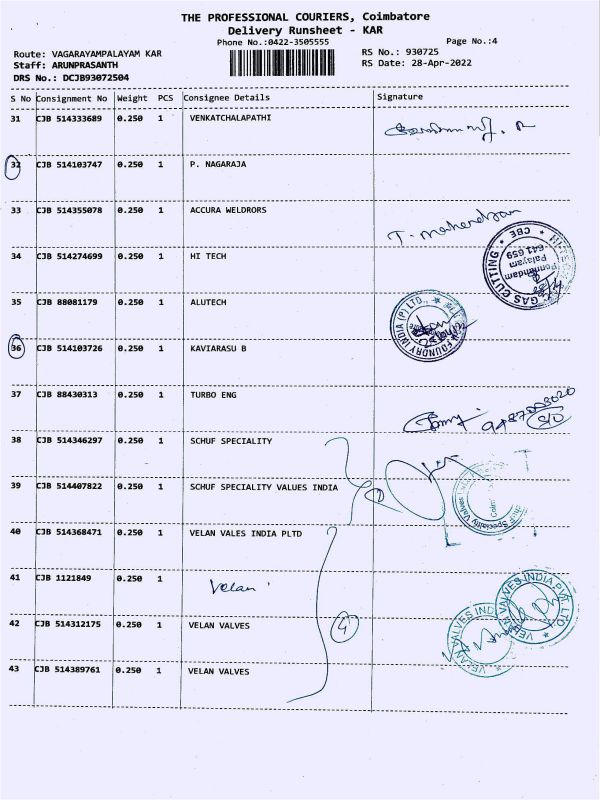 THE PROFESSIONAL COURIERS, Coimbatore
Delivery Runsheet - KAR
Phone No.:0422-3505555
Page No.:4
Route: VAGARAYAMPALAYAM KAR
RS No.: 930725
Staff: ARUNPRASANTH
RS Date: 28-Apr-2022
DRS No.: DCJB93072504
S No Consignment No Weight PCS Consignee Details Signature
31 CJB 514333689 0.250 1 VENKATCHALAPATHI
32 CJB 514103747 0.250 1 P. NAGARAJA
33 CJB 514355078 0.250 1 ACCURA WELDRORS
T. Mahendran
34 CJB 514274699 0.250 1 HI TECH
GAS CUTTING * CBE * HI-TEC
Ponnandam
Palayam
641 659
35 CJB 88081179 0.250 1 ALUTECH
FOUNDRY INDIA (P) LTD.,
36 CJB 514103726 0.250 1 KAVIARASU B
37 CJB 88430313 0.250 1 TURBO ENG
38 CJB 514346297 0.250 1 SCHUF SPECIALITY
39 CJB 514407822 0.250 1 SCHUF SPECIALITY VALUES INDIA
Speciality Valves
40 CJB 514368471 0.250 1 VELAN VALES INDIA PLTD
41 CJB 1121849 0.250 1 Velan
VELAN VALVES INDIA PVT. LTD
42 CJB 514312175 0.250 1 VELAN VALVES 4
VELAN VALVES IND
43 CJB 514389761 0.250 1 VELAN VALVES